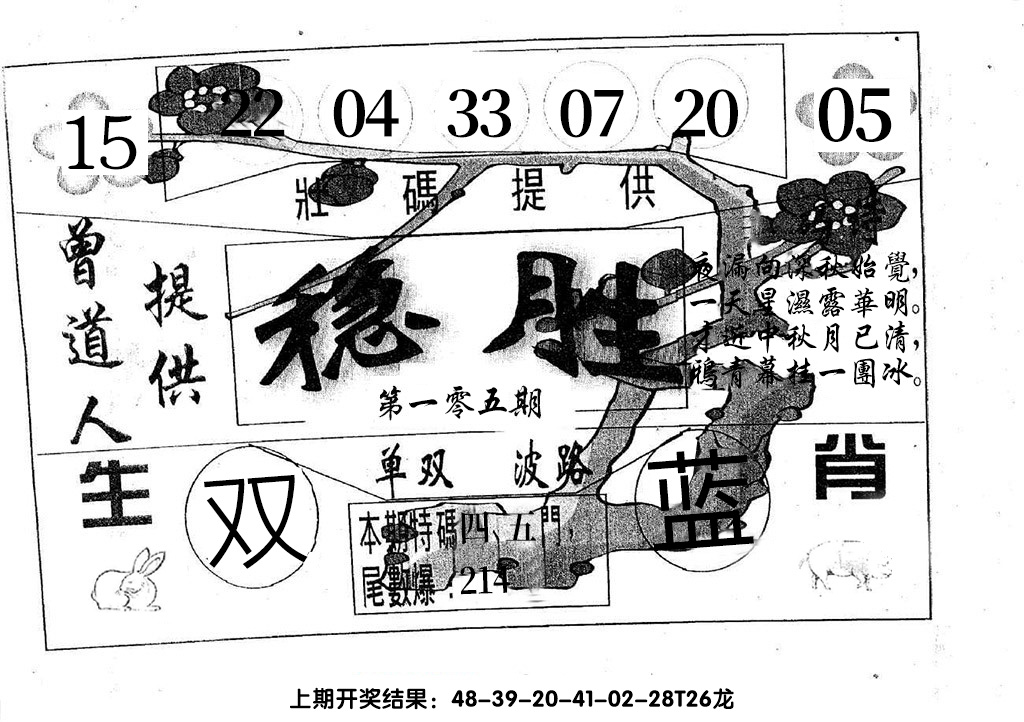 15 22 04 33 07 20 05
壯碼提供
曾道人
提供
稳胜
第一零五期
特
夜漏向深秋始覺，
一天星濕露華明。
才近中秋月已清，
鴉青幕桂一團冰。
单双 波路
生 肖
双 蓝
本期特碼四、五門，
尾數爆：214
上期开奖结果：48-39-20-41-02-28T26龙